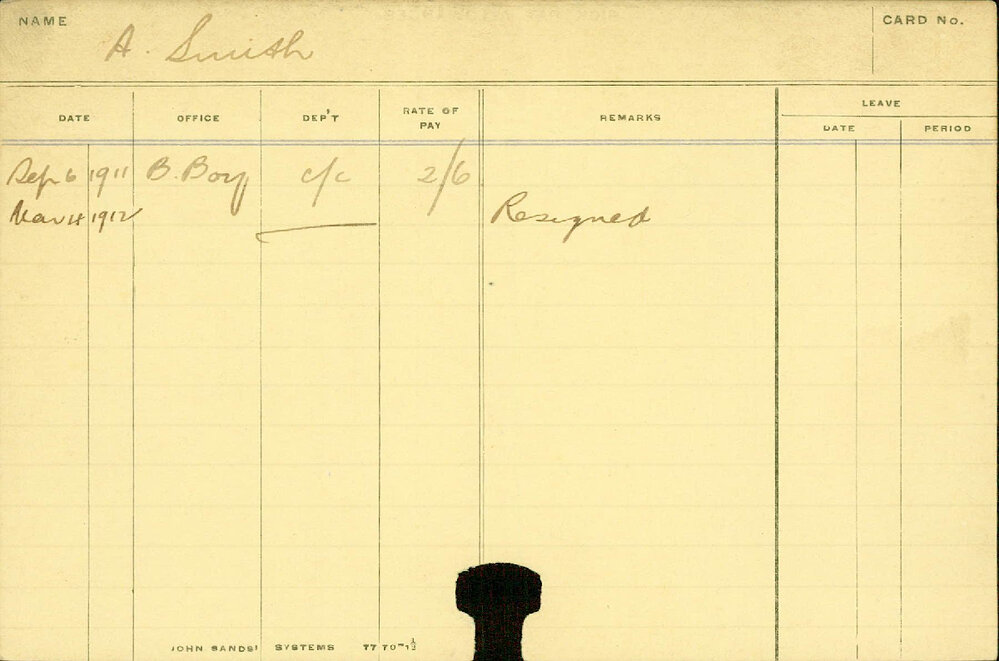 NAME A. Smith CARD No.
DATE OFFICE DEP'T RATE OF PAY REMARKS LEAVE
DATE PERIOD
Sep 6 1911 B. Boy c/c 2/6
Mar 18 1912 Resigned
JOHN SANDS' SYSTEMS